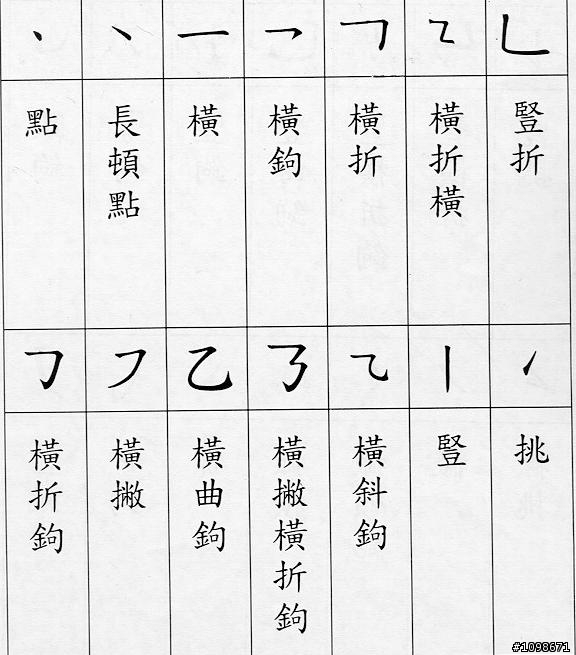 丶 ㇔ 一 乛 𠃍 ㇅ 𠃊
點 長頓點 橫 橫鉤 橫折 橫折橫 豎折
𠃌 ㇇ 乙 ㇌ ⺄ 丨 ㇀
橫折鉤 橫撇 橫曲鉤 橫撇橫折鉤 橫斜鉤 豎 挑
#1098671